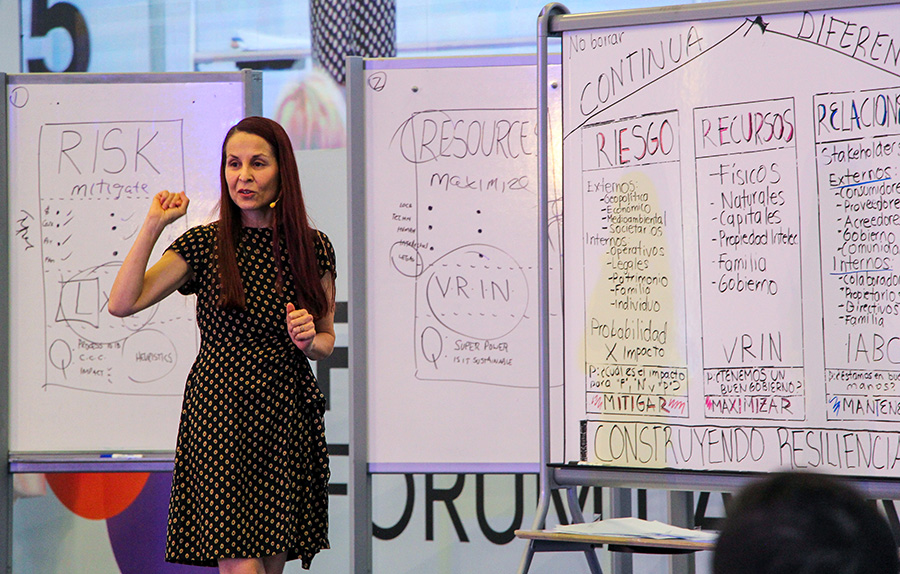 5
1
RISK
mitigate
L
Q
C.C.C.
IMPACT
HEURISTICS
2
RESOURCES
maximize
LOCA
HUMAN
LEGAL
V.R.I.N.
Q
SUPER POWER
IS IT SUSTAINABLE
No borrar
CONTINUA
DIFEREN
RIESGO
Externos:
-Geopolítica
-Económico
-Medioambiental
-Societarios
Internos
-Operativos
-Legales
-Patrimonio
-Familia
-Individuo
Probabilidad
X Impacto
P:¿cuál es el impacto
para "P", "N" y "P"?
MITIGAR
RECURSOS
-Físicos
-Naturales
-Capitales
-Propiedad Intelec
-Familia
-Gobierno
VRIN
P:¿TENEMOS UN
BUEN GOBIERNO?
MAXIMIZAR
RELACIONE
Stakeholders
Externos:
-Consumidore
-Proveedor
-Acreedore
-Gobierno
-Comunida
Internos:
-Colaborador
-Propietario
-Directivos
-Familia
IABC
P:¿Estamos en bue
manos?
MANTENE
CONSTRUYENDO RESILIENCIA
ORUM